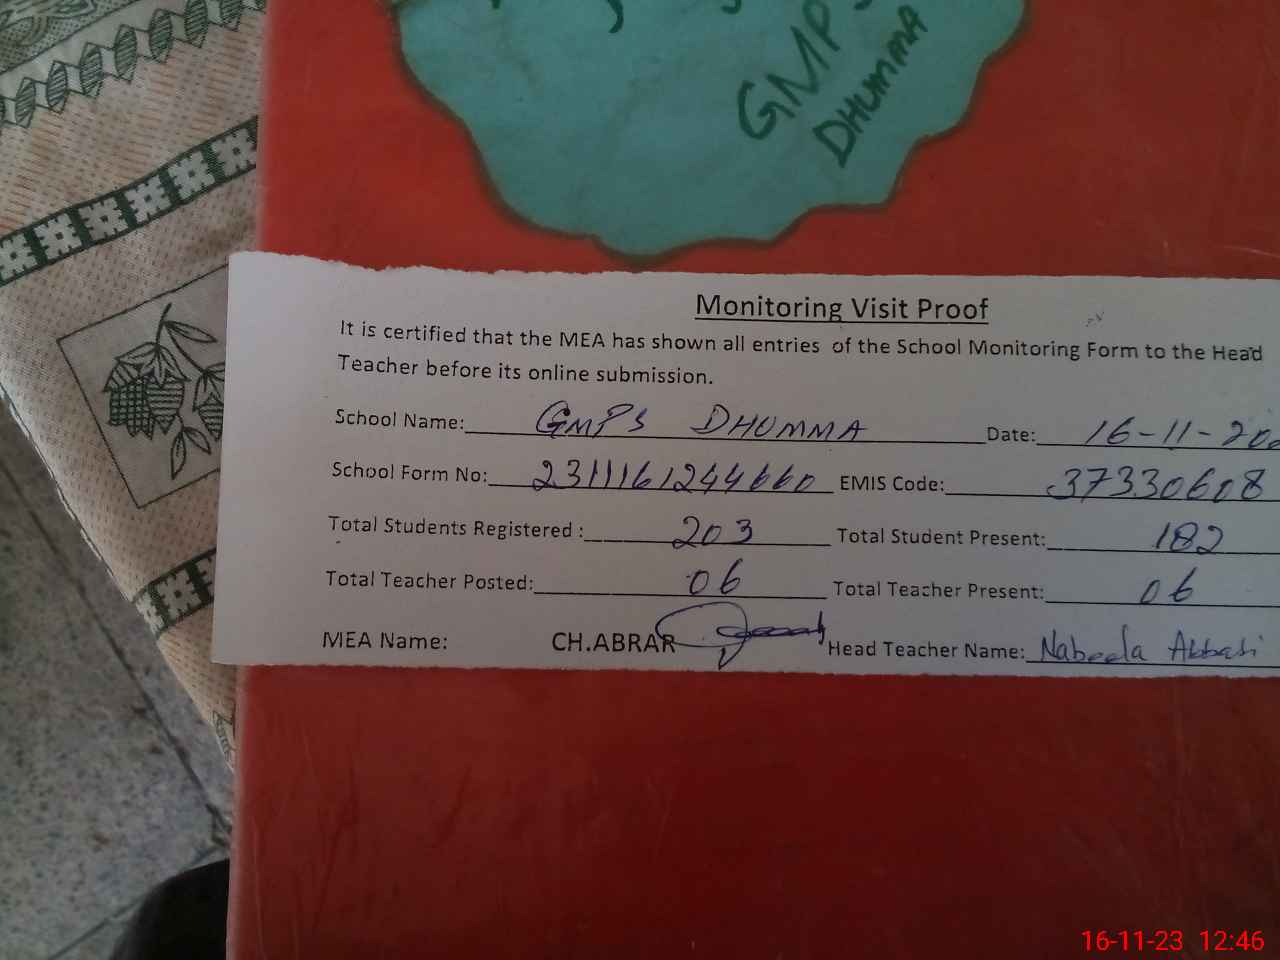 GMPS
DHUMMA
Monitoring Visit Proof
It is certified that the MEA has shown all entries of the School Monitoring Form to the Head
Teacher before its online submission.
School Name: GMPS DHUMMA Date: 16-11-20
School Form No: 2311161244660 EMIS Code: 37330608
Total Students Registered : 203 Total Student Present: 182
Total Teacher Posted: 06 Total Teacher Present: 06
MEA Name: CH.ABRAR Head Teacher Name: Nabeela Abbasi
16-11-23 12:46